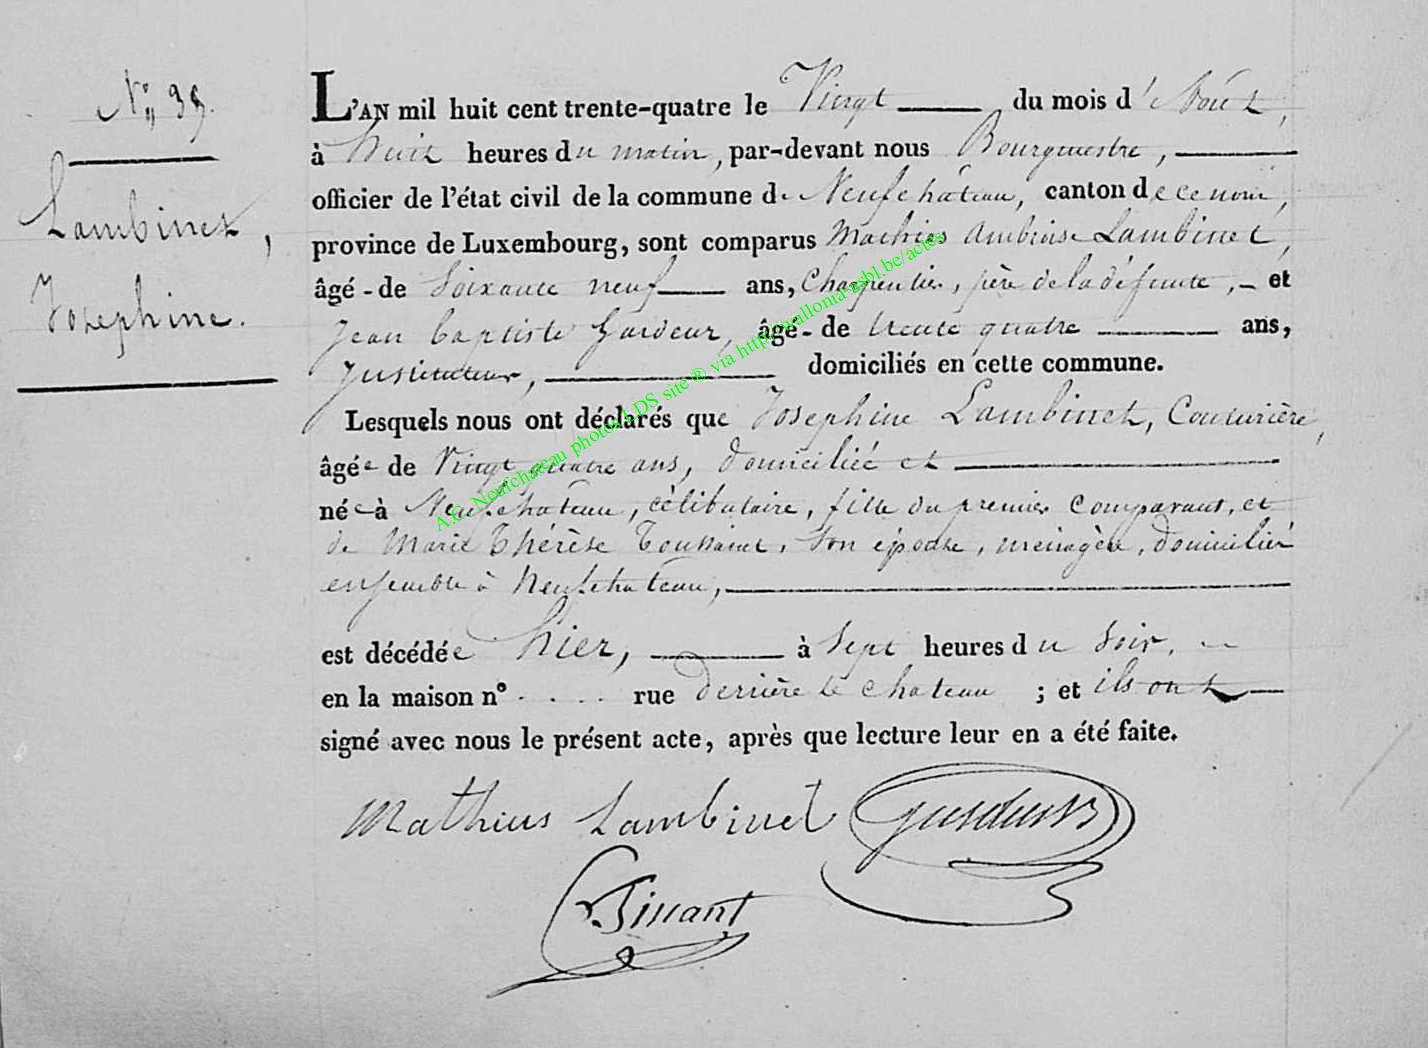 N° 39.
Lambinet,
Josephine.
L'AN mil huit cent trente-quatre le Vingt du mois d'Août,
à huit heures du matin, par-devant nous Bourgmestre,
officier de l'état civil de la commune de Neufchâteau, canton de ce nom,
province de Luxembourg, sont comparus Mathieu Ambroise Lambinet,
âgé de Soixante neuf ans, Charpentier, père de la défunte, et
Jean Baptiste Gardeur, âgé de trente quatre ans,
Instituteur, domiciliés en cette commune.
Lesquels nous ont déclarés que Josephine Lambinet, Couturière,
âgée de Vingt quatre ans, domiciliée et
née à Neufchâteau, célibataire, fille du premier comparant, et
de Marie Thérèse Toussaint, son épouse, ménagère, domiciliés
ensemble à Neufchateau,
est décédée hier, à Sept heures du soir,
en la maison n° . . . . rue derrière le chateau ; et ils ont
signé avec nous le présent acte, après que lecture leur en a été faite.
Mathieus Lambinet
A.C. Neufchateau photos LDS site ® via http://wallonia-asbl.be/actes